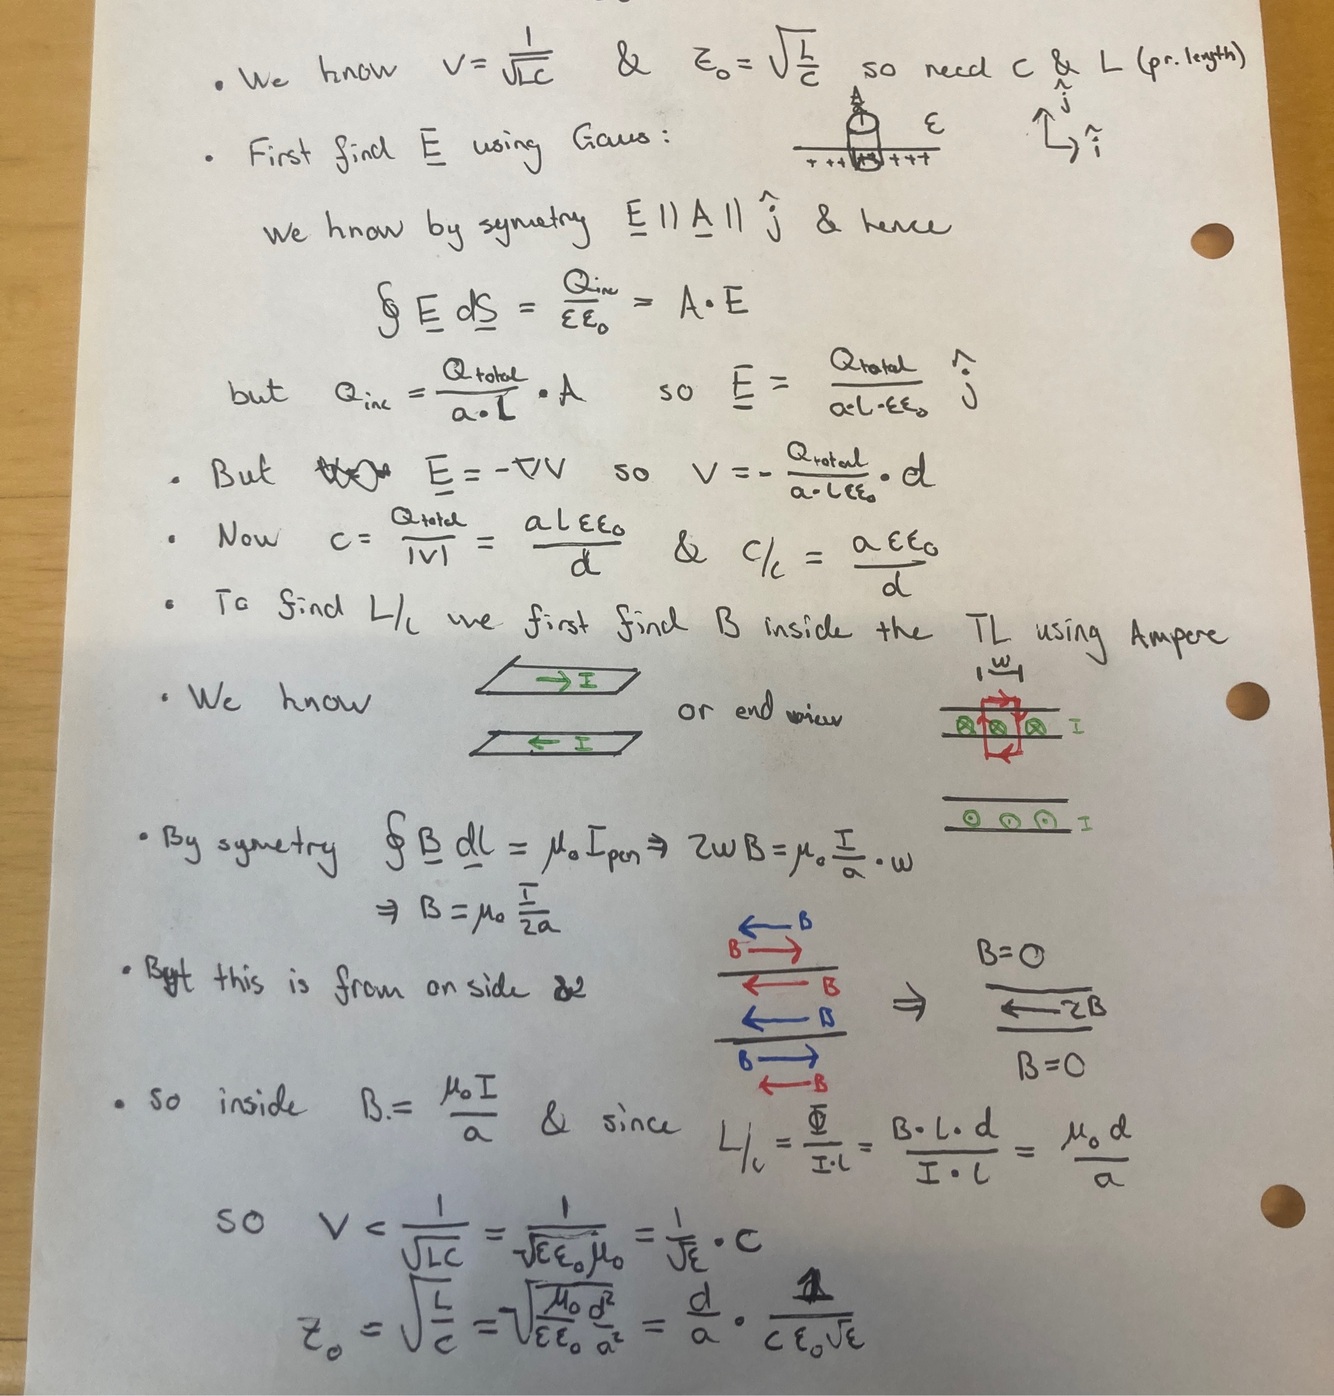 • We know v = 1/√LC & Z₀ = √(L/C) so need C & L (pr. length)
• First find E using Gaus: A ε + ++ ++ +++ ĵ î
We know by symetry E || A || ĵ & hence
∮ E dS = Qinc/εε₀ = A·E
but Qinc = Qtotal/a·L · A so E = Qtotal/a·L·εε₀ ĵ
• But E = -∇V so V = - Qtotal/a·Lεε₀ · d
• Now C = Qtotal/|V| = aLεε₀/d & C/L = aεε₀/d
• To find L/L we first find B inside the TL using Ampere
• We know → I ← I or end view w I I
• By symetry ∮ B dl = μ₀ Ipen ⇒ 2wB = μ₀ I/a · w
⇒ B = μ₀ I/2a
• But this is from on side
← B
B → B=0
← B
← B ⇒ ← 2B
B → B=0
← B
• So inside B = μ₀I/a & since L/L = Φ/I·L = B·L·d/I·L = μ₀d/a
so v = 1/√LC = 1/√εε₀μ₀ = 1/√ε · c
Z₀ = √(L/C) = √(μ₀/εε₀ d²/a²) = d/a · 1/cε₀√ε